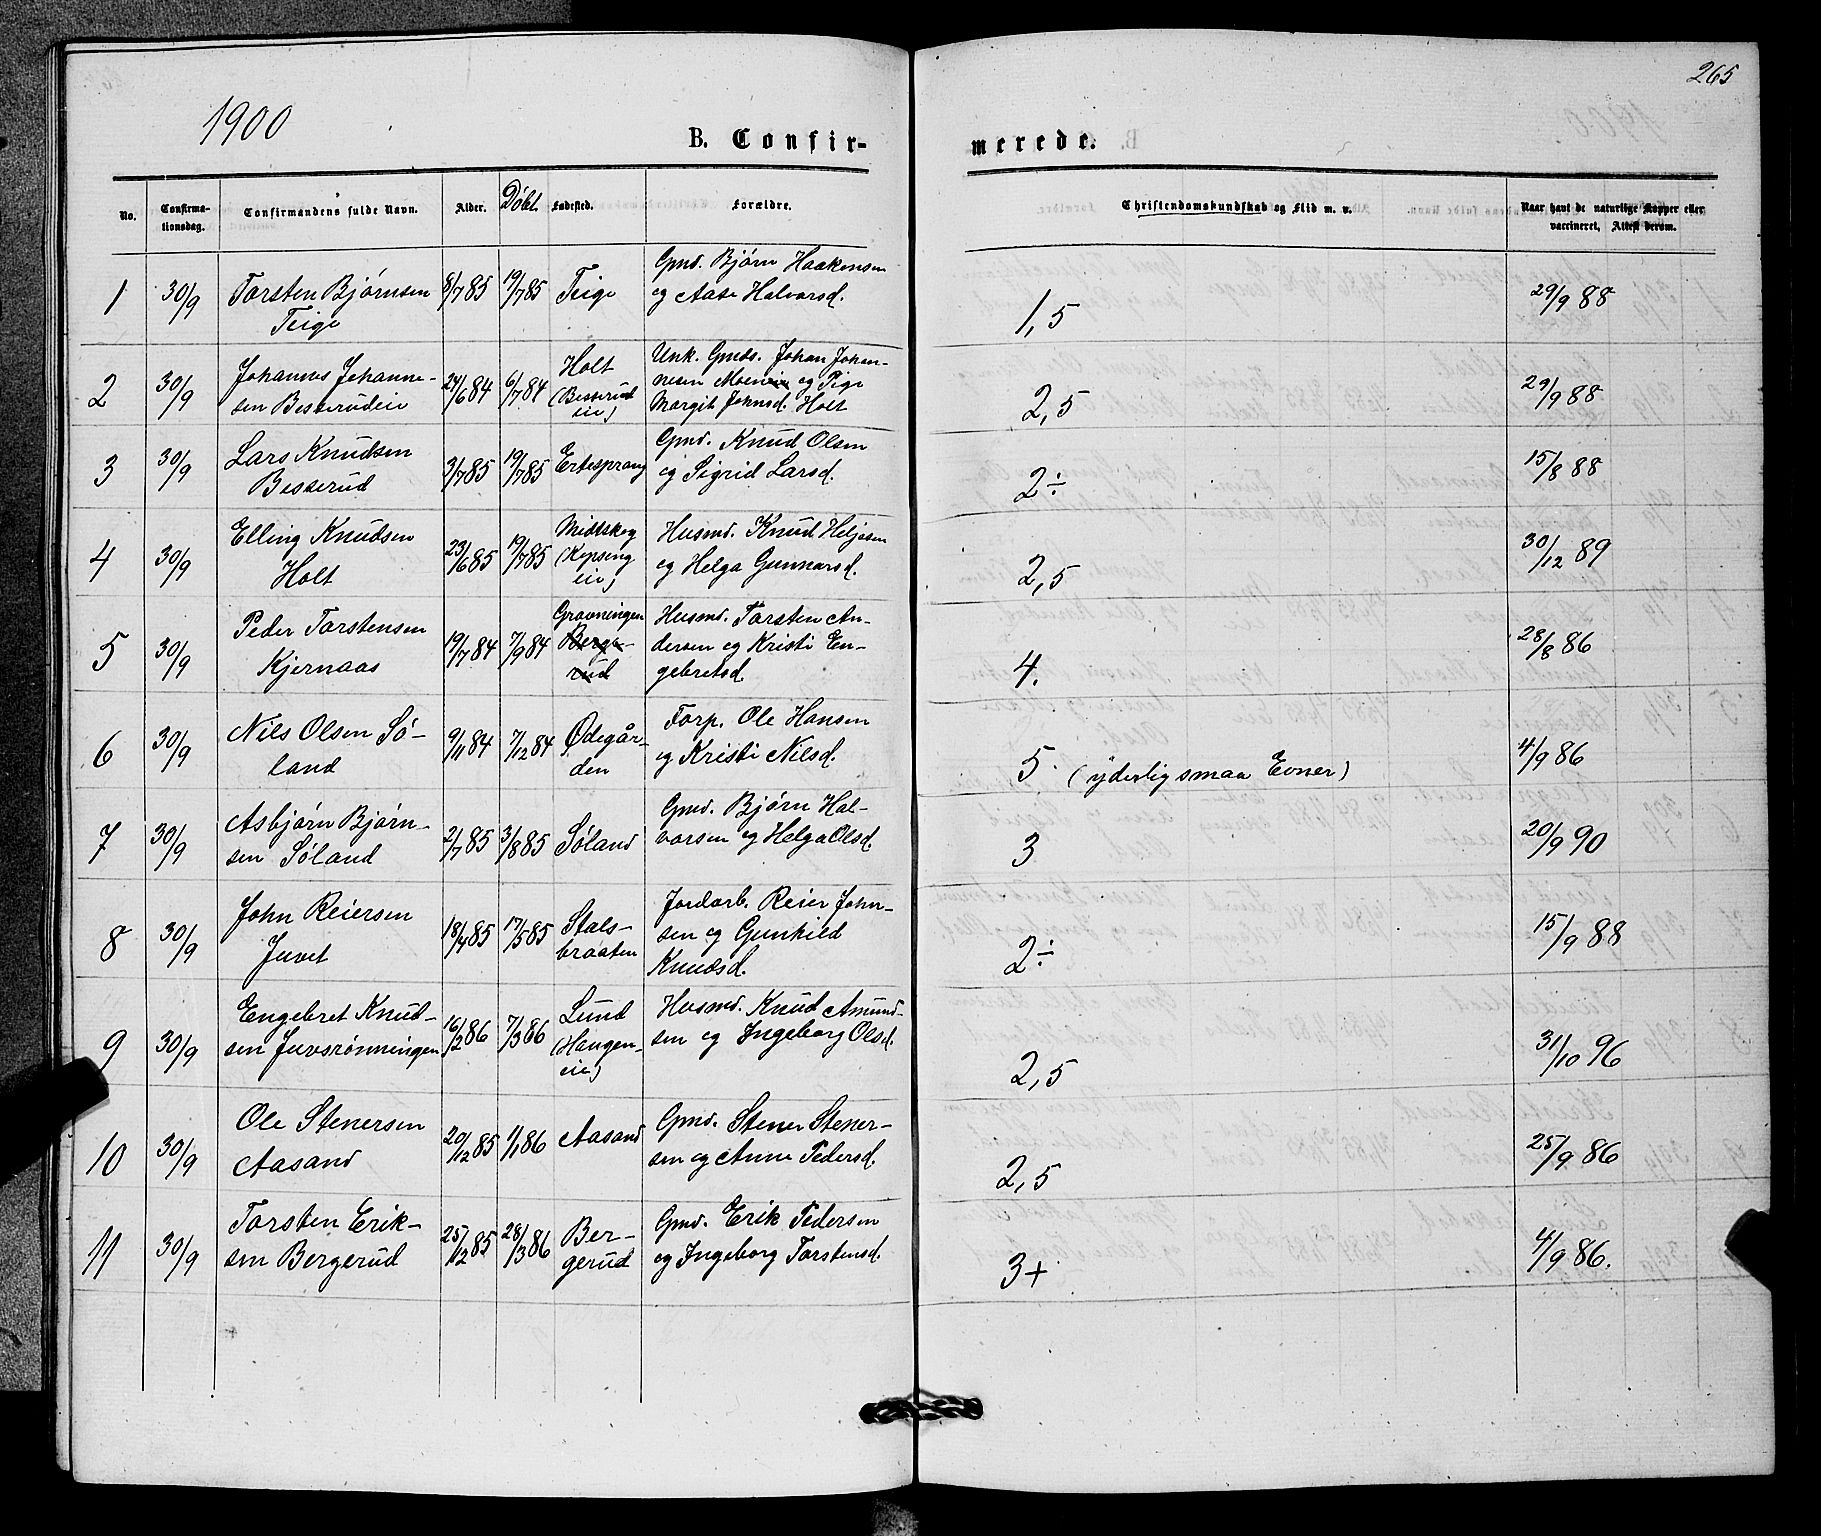 265
1900
B. Confir-
merede.
No.
Confirma-
tionsdag.
Confirmandens fulde Navn.
Alder.
Døbt.
Fødested.
Forældre.
Christendomskundskab og Flid m. v.
Naar havt de naturlige Kopper eller
vaccineret, Attest derom.
1 30/9 Torsten Bjørnsen 8/7 85 19/7 85 Teige Gmd. Bjørn Haakensen
Teige og Aase Halvorsd. 1,5 29/9 88
2 30/9 Johannes Johanne- 24/6 84 6/7 84 Holt Unk. Gmds. Johan Johan-
sen Besserudeie (Besserud nesen Moen og Pige
eie) Margit Johnsd. Holt 2,5 29/9 88
3 30/9 Lars Knudsen 3/7 85 19/7 85 Ertesprang Gmd. Knud Olsen
Besserud og Sigrid Larsd. 2÷ 15/8 88
4 30/9 Elling Knudsen 23/6 85 19/7 85 Midtskog Husmd. Knud Heljesen
Holt (Kopseng og Helga Gunnarsd.
eie) 2,5 30/12 89
5 30/9 Peder Torstensen 19/7 84 7/9 84 Gravningen Husmd. Torsten An-
Kjernaas Berge- dersen og Kristi En-
rud gebretsd. 4. 28/8 86
6 30/9 Nils Olsen Sø- 9/11 84 7/12 84 Ødegår- Forp. Ole Hansen
land den og Kristi Nilsd. 5. (yderlig smaa Evner) 4/9 86
7 30/9 Asbjørn Bjørn- 2/7 85 3/8 85 Søland Gmd. Bjørn Hal-
sen Søland vorsen og Helga Olsd. 3 20/9 90
8 30/9 John Reiersen 18/4 85 17/5 85 Stals- Jordarb. Reier John-
Juvet braaten sen og Gunhild
Knudsd. 2÷ 15/9 88
9 30/9 Engebret Knud- 16/2 86 7/3 86 Lund Husmd. Knud Amund-
sen Juvsrønningen (Haugen- sen og Ingeborg Olsd.
eie) 2,5 31/10 96
10 30/9 Ole Stenersen 20/12 85 1/1 86 Aasand Gmd. Stener Stener-
Aasand sen og Anne Pedersd. 2,5 25/9 86
11 30/9 Torsten Erik- 25/12 85 28/3 86 Ber- Gmd. Erik Pedersen
sen Bergerud gerud og Ingeborg Torstensd. 3+ 4/9 86.